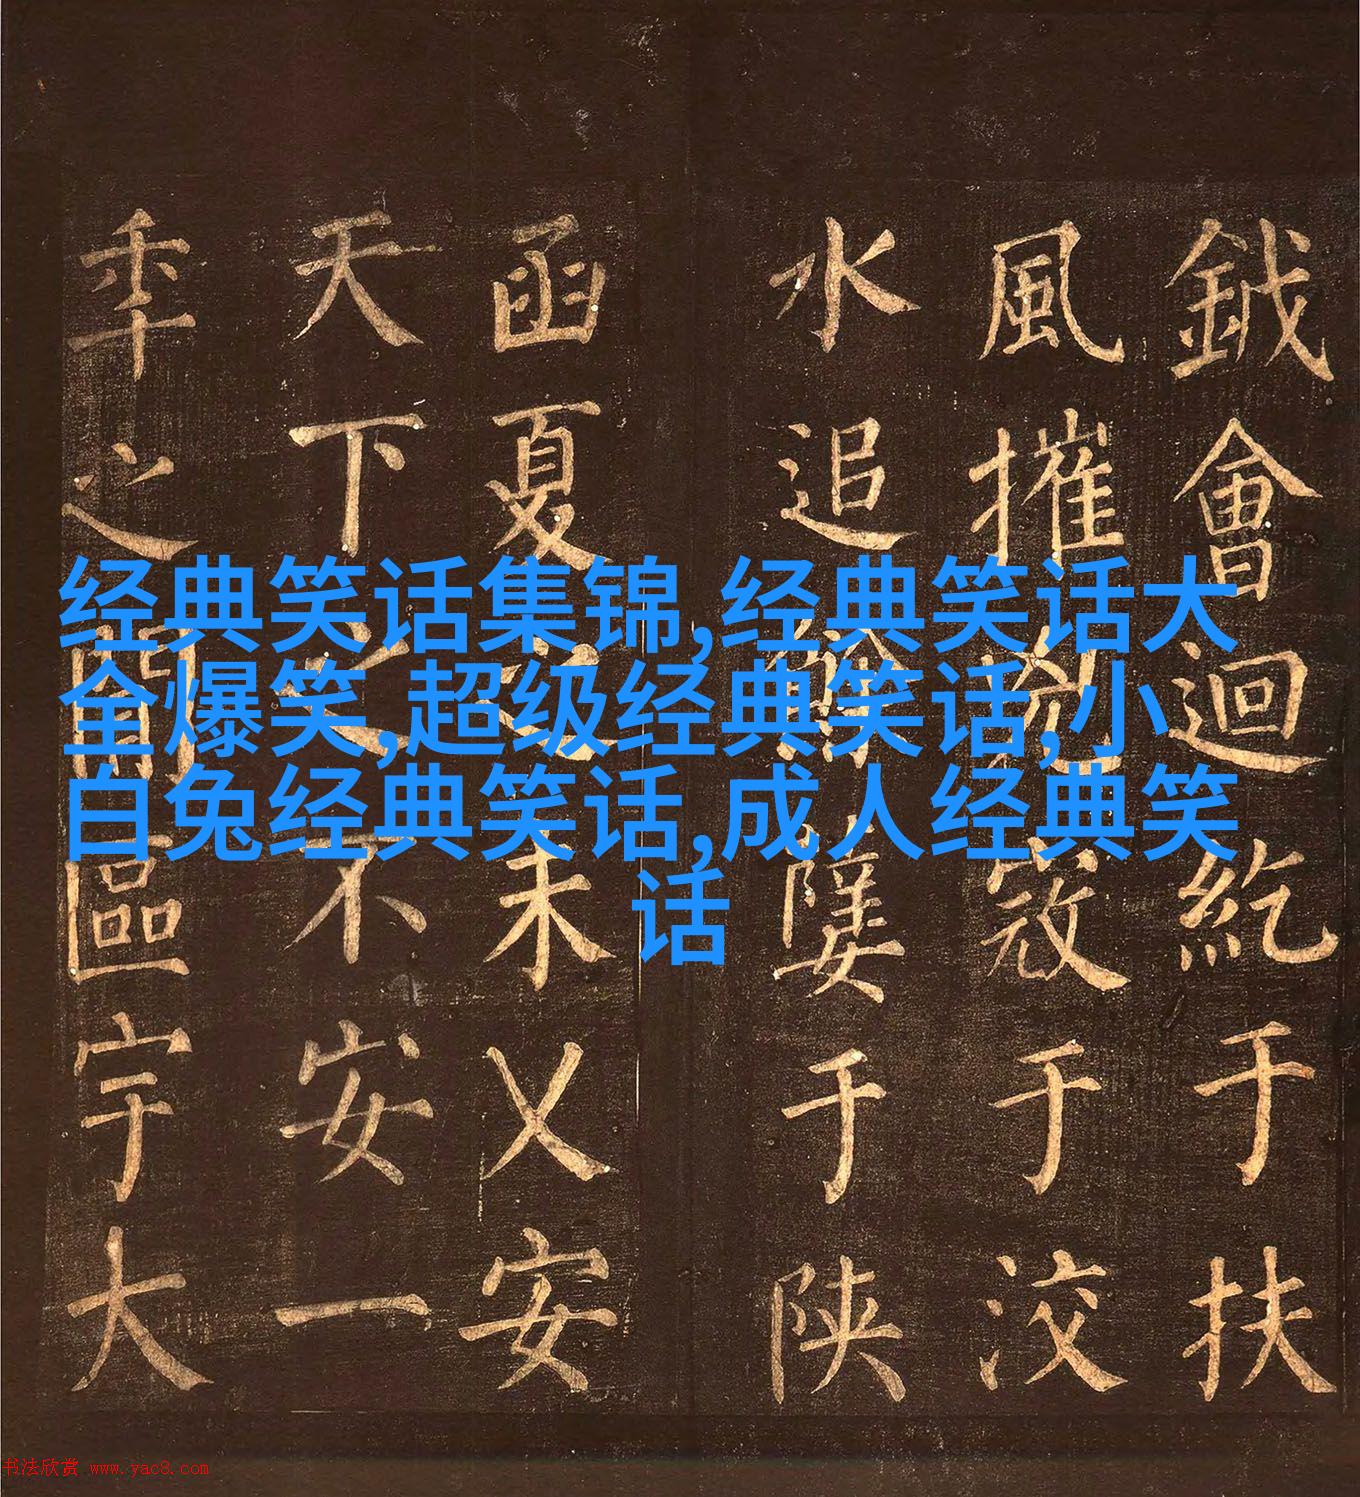 鉞會迴紇于扶
風摧寇于洨
水追于陝
函夏未乂安
天下之不安一
年之間區宇大
经典笑话集锦,经典笑话大
全爆笑,超级经典笑话,小
白兔经典笑话,成人经典笑
话
书法欣赏 www.yac8.com